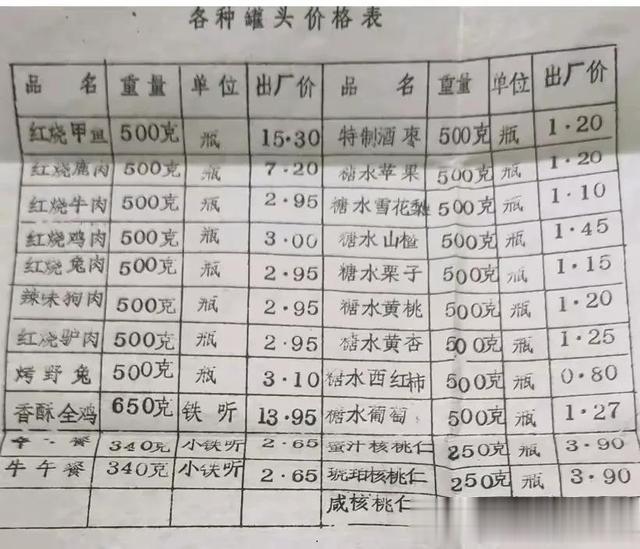 各种罐头价格表
品名 重量 单位 出厂价 品名 重量 单位 出厂价
红烧甲鱼 500克 瓶 15·30 特制酒枣 500克 瓶 1·20
红烧鹿肉 500克 瓶 7·20 糖水苹果 500克 瓶 1·20
红烧牛肉 500克 瓶 2·95 糖水雪花梨 500克 瓶 1·10
红烧鸡肉 500克 瓶 3·00 糖水山楂 500克 瓶 1·45
红烧兔肉 500克 瓶 2·95 糖水栗子 500克 瓶 1·15
辣味狗肉 500克 瓶 2·95 糖水黄桃 500克 瓶 1·20
红烧驴肉 500克 瓶 2·95 糖水黄杏 500克 瓶 1·25
烤野兔 500克 瓶 3·10 糖水西红柿 500克 瓶 0·80
香酥全鸡 650克 铁听 13·95 糖水葡萄 500克 瓶 1·27
餐 340克 小铁听 2·65 蜜汁核桃仁 250克 瓶 3·90
牛午餐 340克 小铁听 2·65 琥珀核桃仁 250克 瓶 3·90
咸核桃仁